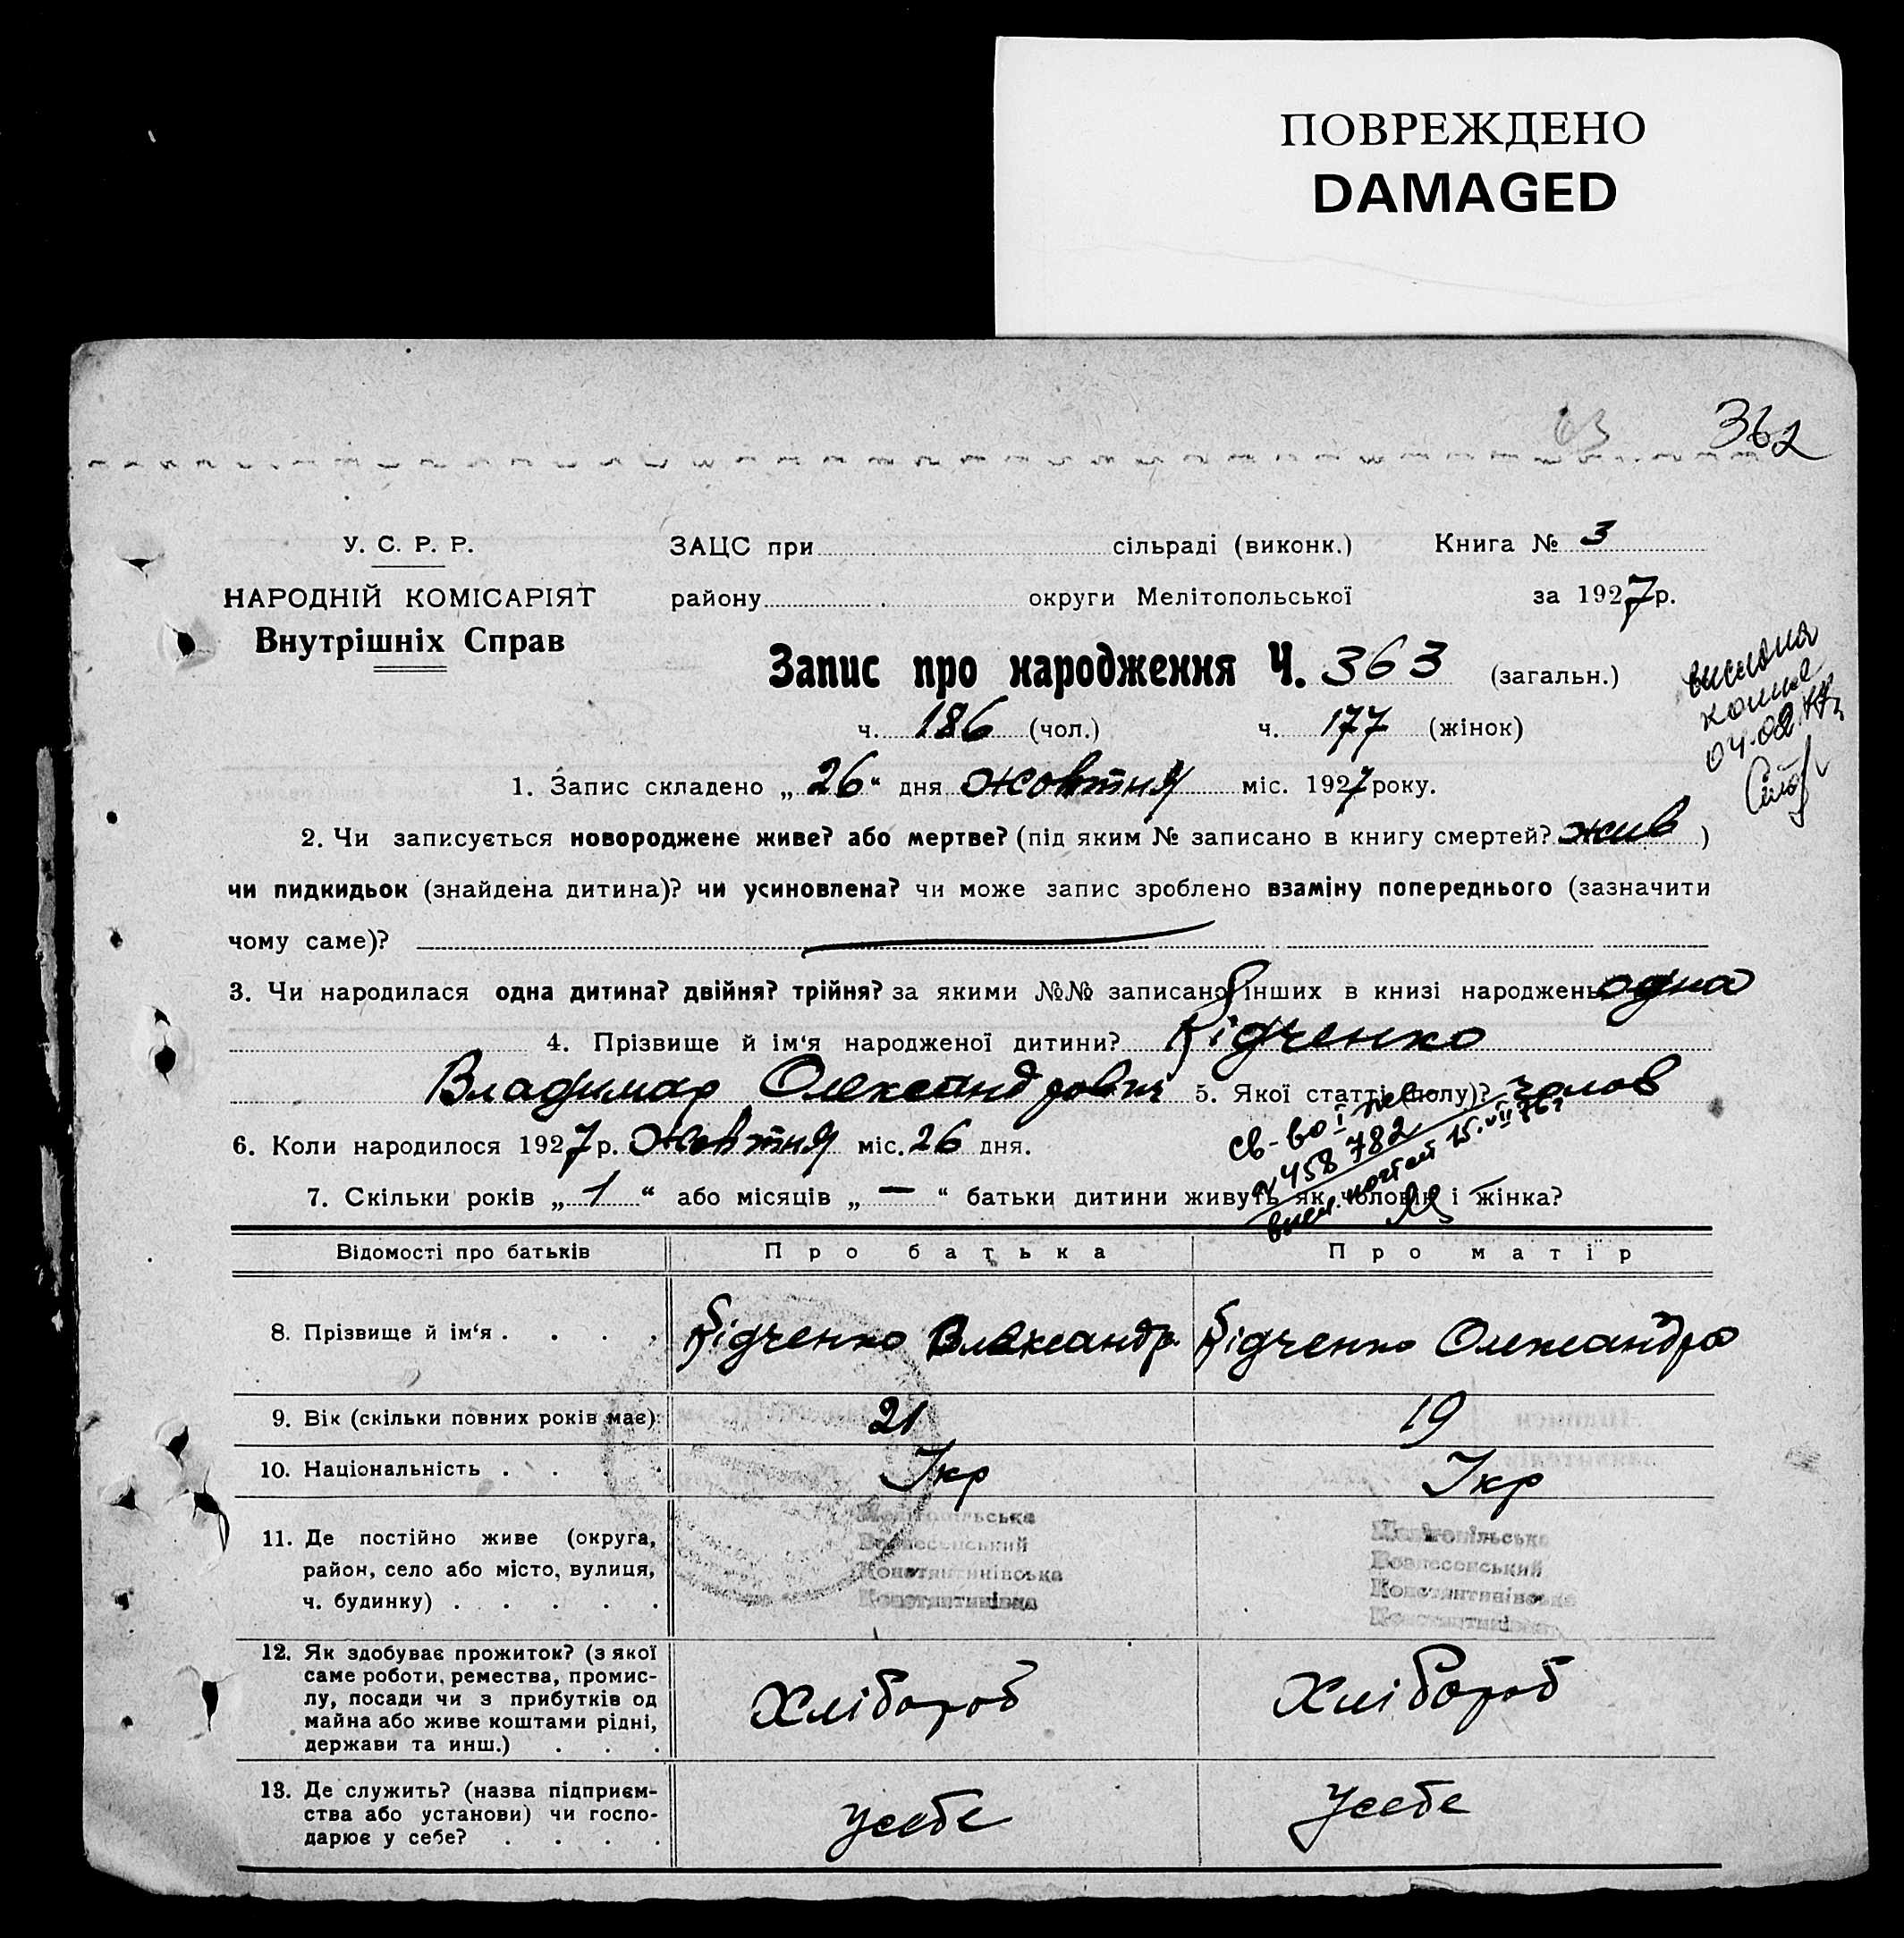 ПОВРЕЖДЕНО
DAMAGED
362
У. С. Р. Р.
НАРОДНІЙ КОМІСАРІЯТ
Внутрішніх Справ
ЗАЦС при сільраді (виконк.) Книга № 3
району округи Мелітопольської за 1927р.
Запис про народження Ч. 363 (загальн.)
ч. 186 (чол.) ч. 177 (жінок)
1. Запис складено „26“ дня жовтня міс. 1927 року.
2. Чи записується новороджене живе? або мертве? (під яким № записано в книгу смертей? жив)
чи пидкидьок (знайдена дитина)? чи усиновлена? чи може запис зроблено взаміну попереднього (зазначити
чому саме)?
3. Чи народилася одна дитина? двійня? трійня? за якими №№ записано інших в книзі народжень одна
4. Прізвище й ім‘я народженої дитини? Бідченко
Владимир Олександрович 5. Якої статті (полу)? чолов
6. Коли народилося 1927р. жовтня міс. 26 дня.
св-во
458782
7. Скільки років „1“ або місяців „—“ батьки дитини живуть як чоловік і жінка?
Відомості про батьків Про батька Про матір
8. Прізвище й ім‘я . . . . Бідченко Олександр Бідченко Олександра
9. Вік (скільки повних років має): 21 19
10. Національність . . . Укр Укр
11. Де постійно живе (округа, район, село або місто, вулиця, ч. будинку) . . . . .
Мелітопільська Вознесенський Константинівська Константинівка
Мелітопільська Вознесенський Константинівська Константинівка
12. Як здобуває прожиток? (з якої саме роботи, ремества, промис-
лу, посади чи з прибутків од
майна або живе коштами рідні,
держави та инш.) . . .
Хлібороб Хлібороб
13. Де служить? (назва підприєм-
ства або установи) чи госпо-
дарює у себе? . . . .
Усебе Усебе